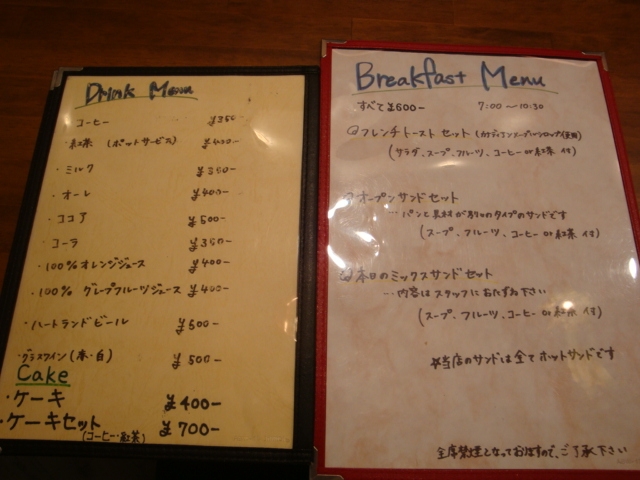 Drink Menu
・コーヒー ¥350-
・紅茶 (ポットサービス) ¥400-
・ミルク ¥350-
・オーレ ¥400-
・ココア ¥500-
・コーラ ¥350-
・100%オレンジジュース ¥400-
・100% グレープフルーツジュース ¥400-
・ハートランドビール ¥600-
・グラスワイン(赤・白) ¥500-
Cake
・ケーキ ¥400-
・ケーキセット ¥700-
(コーヒー・紅茶)
Breakfast Menu
すべて¥600- 7:00〜10:30
フレンチトーストセット (カナディアンメープルシロップ使用)
(サラダ、スープ、フルーツ、コーヒーor紅茶 付)
オープンサンドセット
…パンと具材が別々のタイプのサンドです
(スープ、フルーツ、コーヒーor紅茶 付)
本日のミックスサンドセット
…内容はスタッフにおたずね下さい
(スープ、フルーツ、コーヒーor紅茶 付)
☆当店のサンドは全てホットサンドです
全席禁煙となっておりますので、ご了承下さい